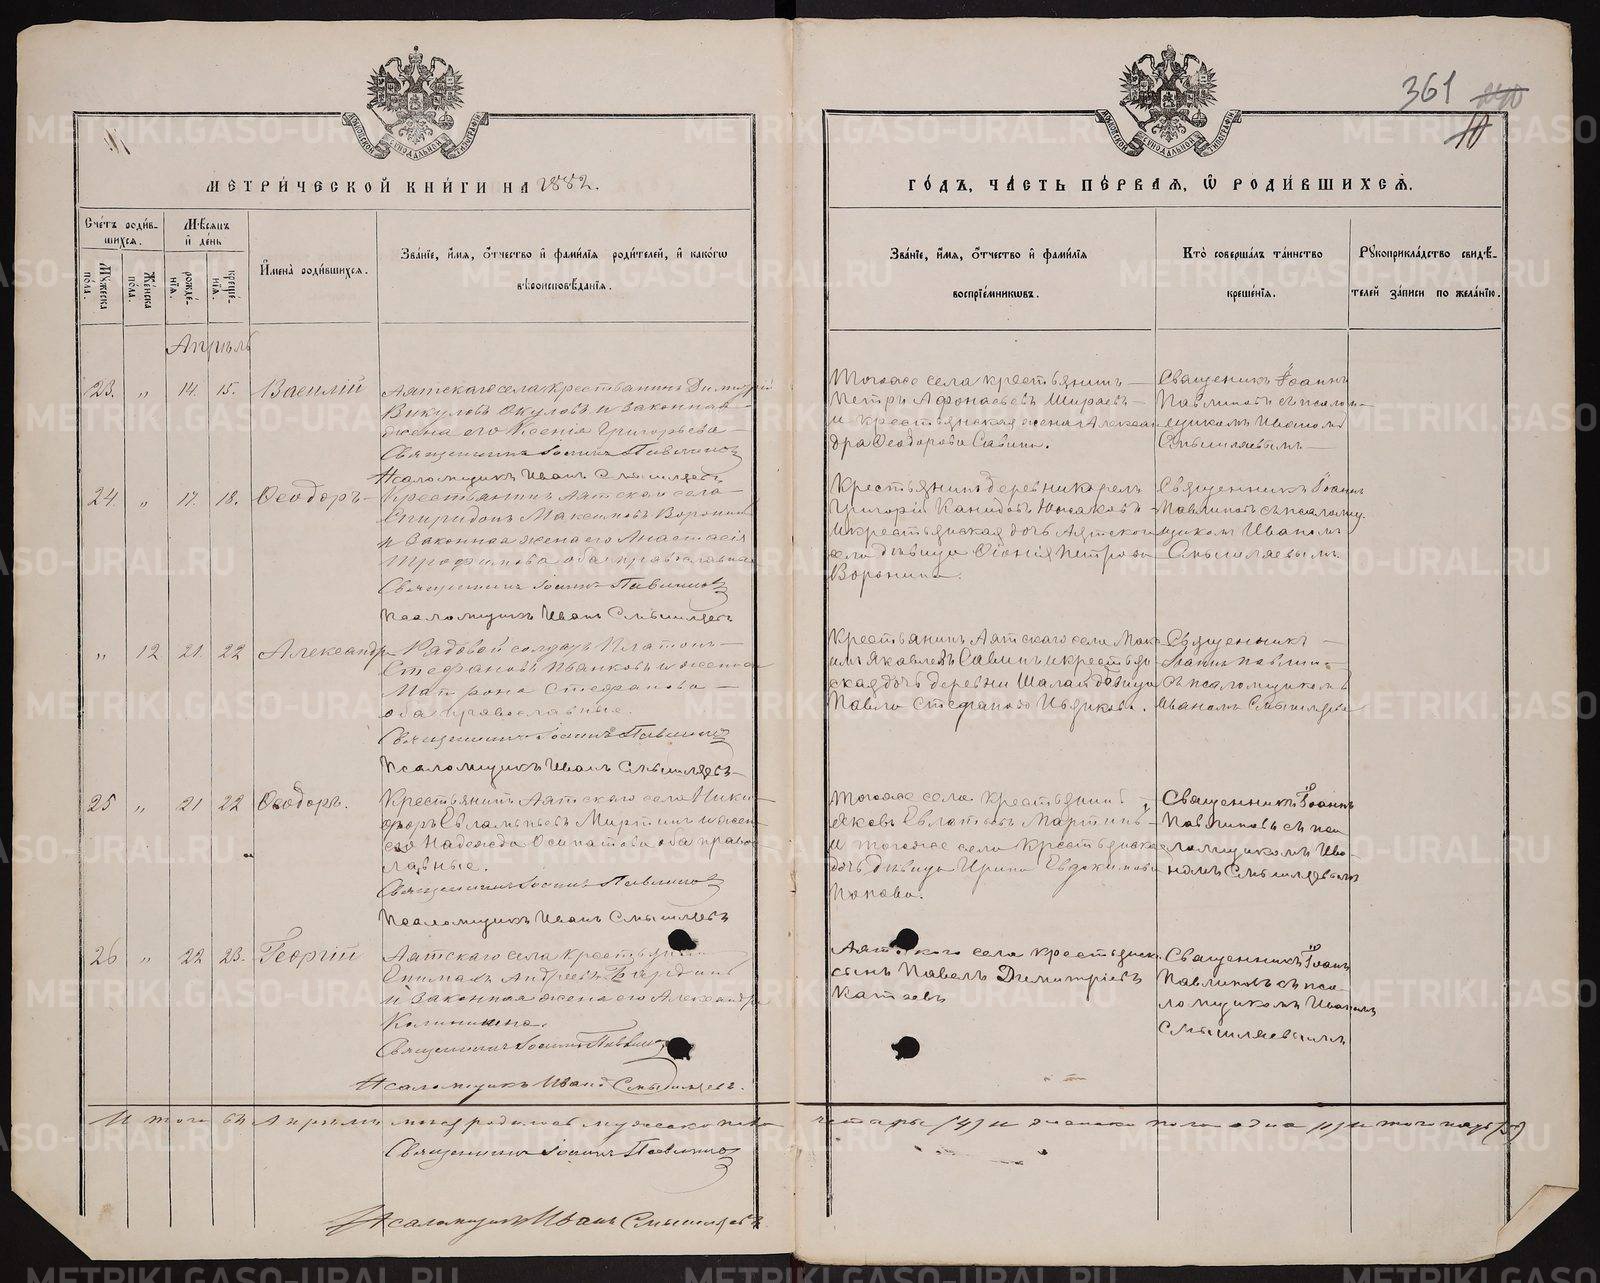 361
10
МОСКОВСКОЙ СѴНОДАЛЬНОЙ ТИПОГРАФІИ
МОСКОВСКОЙ СѴНОДАЛЬНОЙ ТИПОГРАФІИ
МЕТРИ́ЧЕСКОЙ КНИ́ГИ НА 1882.
ГО́ДЪ, ЧА́СТЬ ПЕ́РВАЯ, Ѡ҆ РОДИ́ВШИХСѦ.
Сче́тъ роди́в-
шихся.
Мѣ́сяцъ
и҆ де́нь
Му́жеска
по́ла.
Же́нска
по́ла.
рожде́-
нїя.
креще́-
нїя.
И҆мена̀ роди́вшихся.
Зва́нїе, и҆́мя, ѻ҆́тчество и҆ фами́лїя роди́телей, и҆ како́гѡ
вѣроисповѣ́данїя.
Зва́нїе, и҆́мя, ѻ҆́тчество и҆ фами́лїя
воспрїе́мникѡвъ.
Кто̀ соверша́лъ та́инство
креще́нїя.
Рꙋкоприкла́дство свидѣ́-
телей за́писи по жела́нїю.
Апрѣль
23. „ 14. 15. Василій
Аятскаго села крестьянинъ Димитрій
Викуловъ Окуловъ и законная
жена его Ксенія Григорьева
Священникъ Іоаннъ Павлиновъ
Псаломщикъ Иванъ Смышляевъ
Тогоже села крестьянинъ
Петръ Афонасьевъ Ширяевъ
и крестьянская жена Алексан
дра Ѳеодорова Савина.
Священникъ Іоаннъ
Павлиновъ съ псалом-
щикомъ Иваномъ
Смышляевымъ
24. „ 17. 18. Ѳеодоръ
Крестьянинъ Аятскаго села
Спиридонъ Максимовъ Воронинъ
и законная жена его Анастасія
Трофимова оба православные
Священникъ Іоаннъ Павлиновъ
Псаломщикъ Иванъ Смышляевъ
Крестьянинъ деревни Корелъ
Григорій
и крестьянская дочь Аятскаго
села дѣвица Петрова
Воронина.
Священникъ Іоаннъ
Павлиновъ съ псалом
щикомъ Иваномъ
Смышляевымъ
„ 12. 21. 22 Александра
Рядовой солдатъ Платонъ
Стефановъ Иванковъ и жена
Матрона Стефанова
оба православные.
Священникъ Іоаннъ Павлиновъ
Псаломщикъ Иванъ Смышляевъ
Крестьянинъ Аятскаго села Мак
имъ Яковлевъ Савинъ и крестьян
ская дочь деревни Шалай дѣвица
Павла Стефанова
Священникъ
Іоаннъ Павлин
съ псаломщикомъ
Иваномъ Смышляевы
25 „ 21 22 Ѳеодоръ.
Крестьянинъ Аятскаго села Ники
форъ Евлампьевъ Мартинъ и жена
его Надежда Осипатова оба право
славные.
Священникъ Іоаннъ Павлиновъ
Псаломщикъ Иванъ Смышляевъ
Тогоже села крестьянинъ
Яковъ Мартинъ
и тогоже села крестьянская
дочь дѣвица Ирина Евдокимова
Попова.
Священникъ Іоаннъ
Павлиновъ съ пса
ломщикомъ Ива-
номъ Смышляевымъ
26 „ 22 23. Георгій
Аятскаго села крестьянинъ
Андреевъ
и законная жена его Александра
Калинина.
Священникъ Іоаннъ Павлиновъ
Псаломщикъ Иванъ Смышляевъ.
Аятскаго села крестьянск
сынъ Павелъ Димитріевъ
Катаевъ
Священникъ Іоаннъ
Павлиновъ съ пса
ломщикомъ Иваномъ
Смышляевымъ
Итого въ Апрѣлѣ м-цѣ родилось мужеска пола четыре /4/ и женска пола одна /1/ итого пять /5/
Священникъ Іоаннъ Павлиновъ
Псаломщикъ Иванъ Смышляевъ
METRIKI.GASO-URAL.RU